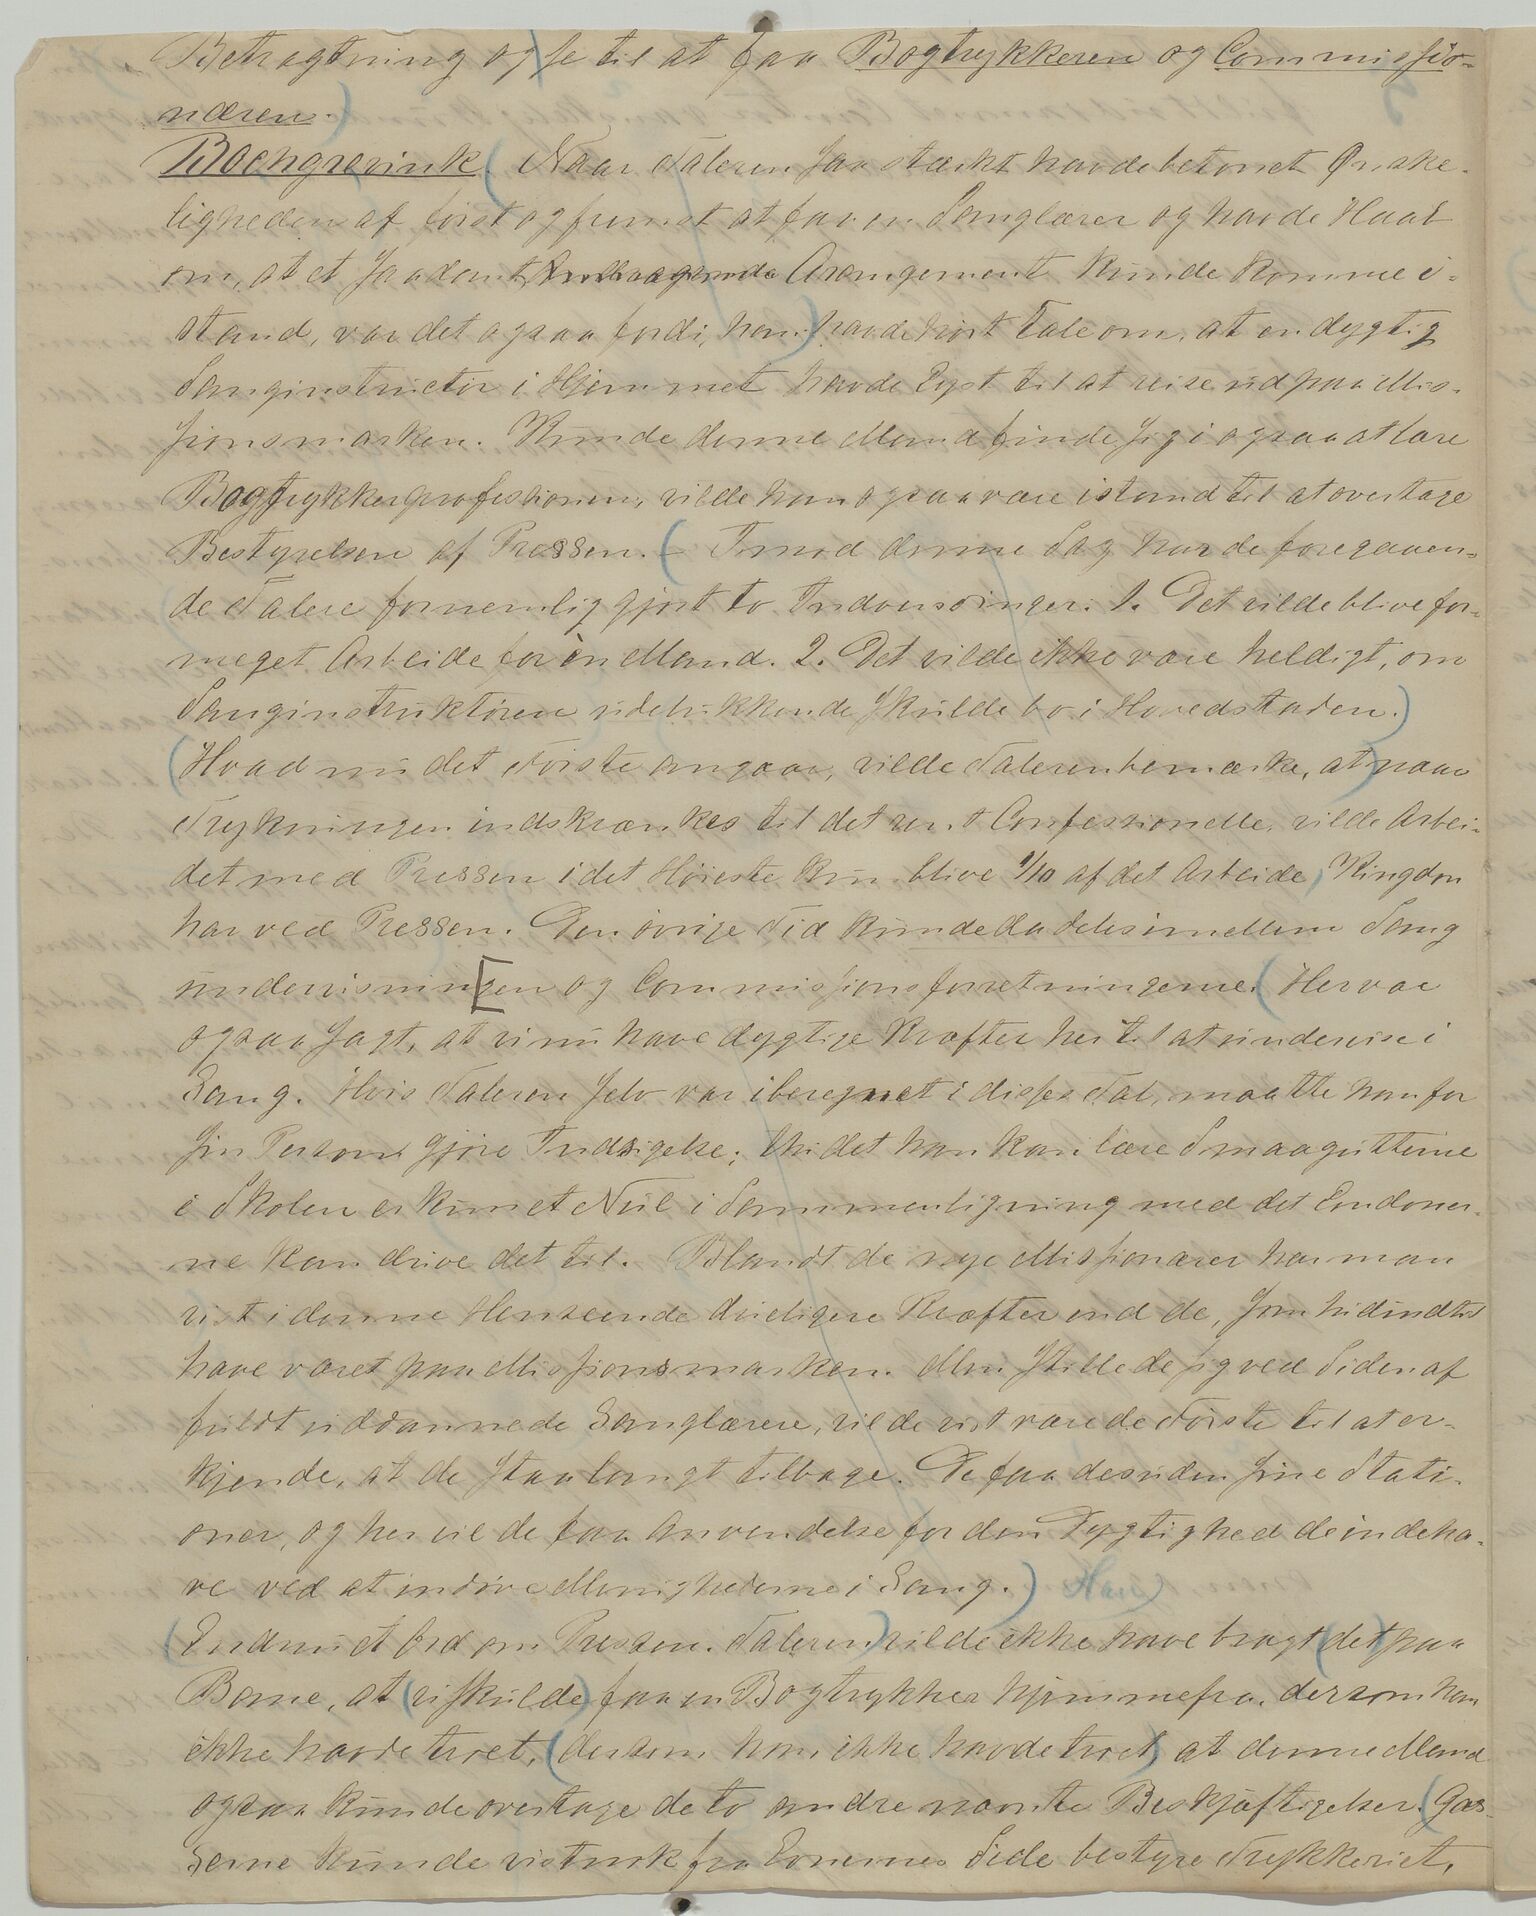 Betragtning og se til at faa Bogtrykkeren og Commissio-
næren.
Borchgrevink. Naar Taleren saa stærkt havde betonet Ønske-
ligheden af först og fremst at faa en Sanglærer og havde Haab
om, at et saadant Arangement kunde komme i-
stand, var det ogsaa fordi, han havde hört Tale om, at en dygtig
Sanginstructör i Hjemmet havde Lyst til at reise ud paa Mis-
sionsmarken. Kunde denne Mand finde sig i ogsaa at lære
Bogtrykkerprofessionen, vilde han ogsaa være istand til at overtage
Bestyrelsen af Pressen. – Imod denne Sag har de foregaaen-
de Talere fornemlig gjort to Indvendinger: 1. Det vilde blive for-
meget Arbeide for èn Mand. 2. Det vilde ikke være heldigt, om
Sanginstruktören udelukkende skulde bo i Hovedstaden.
Hvad nu det Förste angaar, vilde Taleren bemærke, at naar
Trykningen indskrænkes til det rent Confessionelle, vilde Arbei-
det med Pressen i det Höieste kun blive 1/10 af det Arbeide, Kingdon
har ved Pressen. Den övrige Tid kunde da deles imellem Sang
undervisningen og Commissionsforretningerne. Her var
ogsaa sagt, at vi nu have dygtige Kræfter her til at undervise i
Sang. Hvis Taleren selv var iberegnet i disses Tal, maatte han for
sin Person gjöre Indsigelse; thi det han kan lære Smaagutterne
i Skolen er kun et Nul i Sammenligning med det Londoner-
ne kan drive det til. Blandt de nye Missionærer har man
vist i denne Henseende dueligere Kræfter end de, som hidindtil
have været paa Missionsmarken. Men stillede sig ved Siden af
fuldt uddannede Sanglærere, vilde vist være de Förste til at er-
kjende, at de staa langt tilbage. De faa desuden sine Stati-
oner, og her vil de faa Anvendelse for den Dygtighed de indeha-
ve ved at indöve Menighederne i Sang. Han
Endnu et Ord om Pressen. Taleren vilde ikke have bragt det paa
Bane, at vi skulde faa en Bogtrykker hjemmefra, dersom han
ikke havde troet, dersom han ikke havde troet, at denne Mand
ogsaa kunde overtage de to andre nævnte Beskjæftigelser. Gas-
serne kunde vistnok fra Evnernes Side bestyre Trykkeriet,